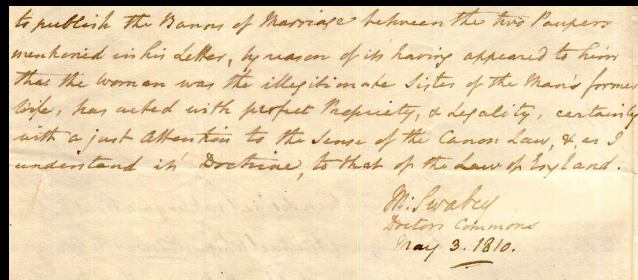 to publish the Banns of Marriage between the two Paupers
mentioned in his Letter, by reason of it's having appeared to him
that the woman was the illegitimate Sister of the Man's former
Wife, has acted with perfect Propriety, & Legality, certainly
with a just Attention to the Sense of the Canon Law, & as I
understand it's Doctrine, to that of the Law of England.
M. Swabey
Doctors Commons
May 3. 1810.